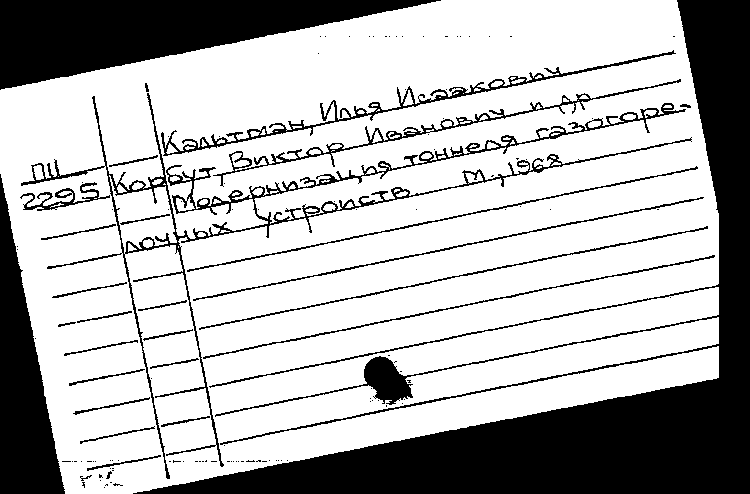 Кальтман, Илья Исаакович
ПЦ
2295 Корбут, Виктор Иванович и др
Модернизация тоннеля газогоре-
лочных устроиств М., 1968
ГК